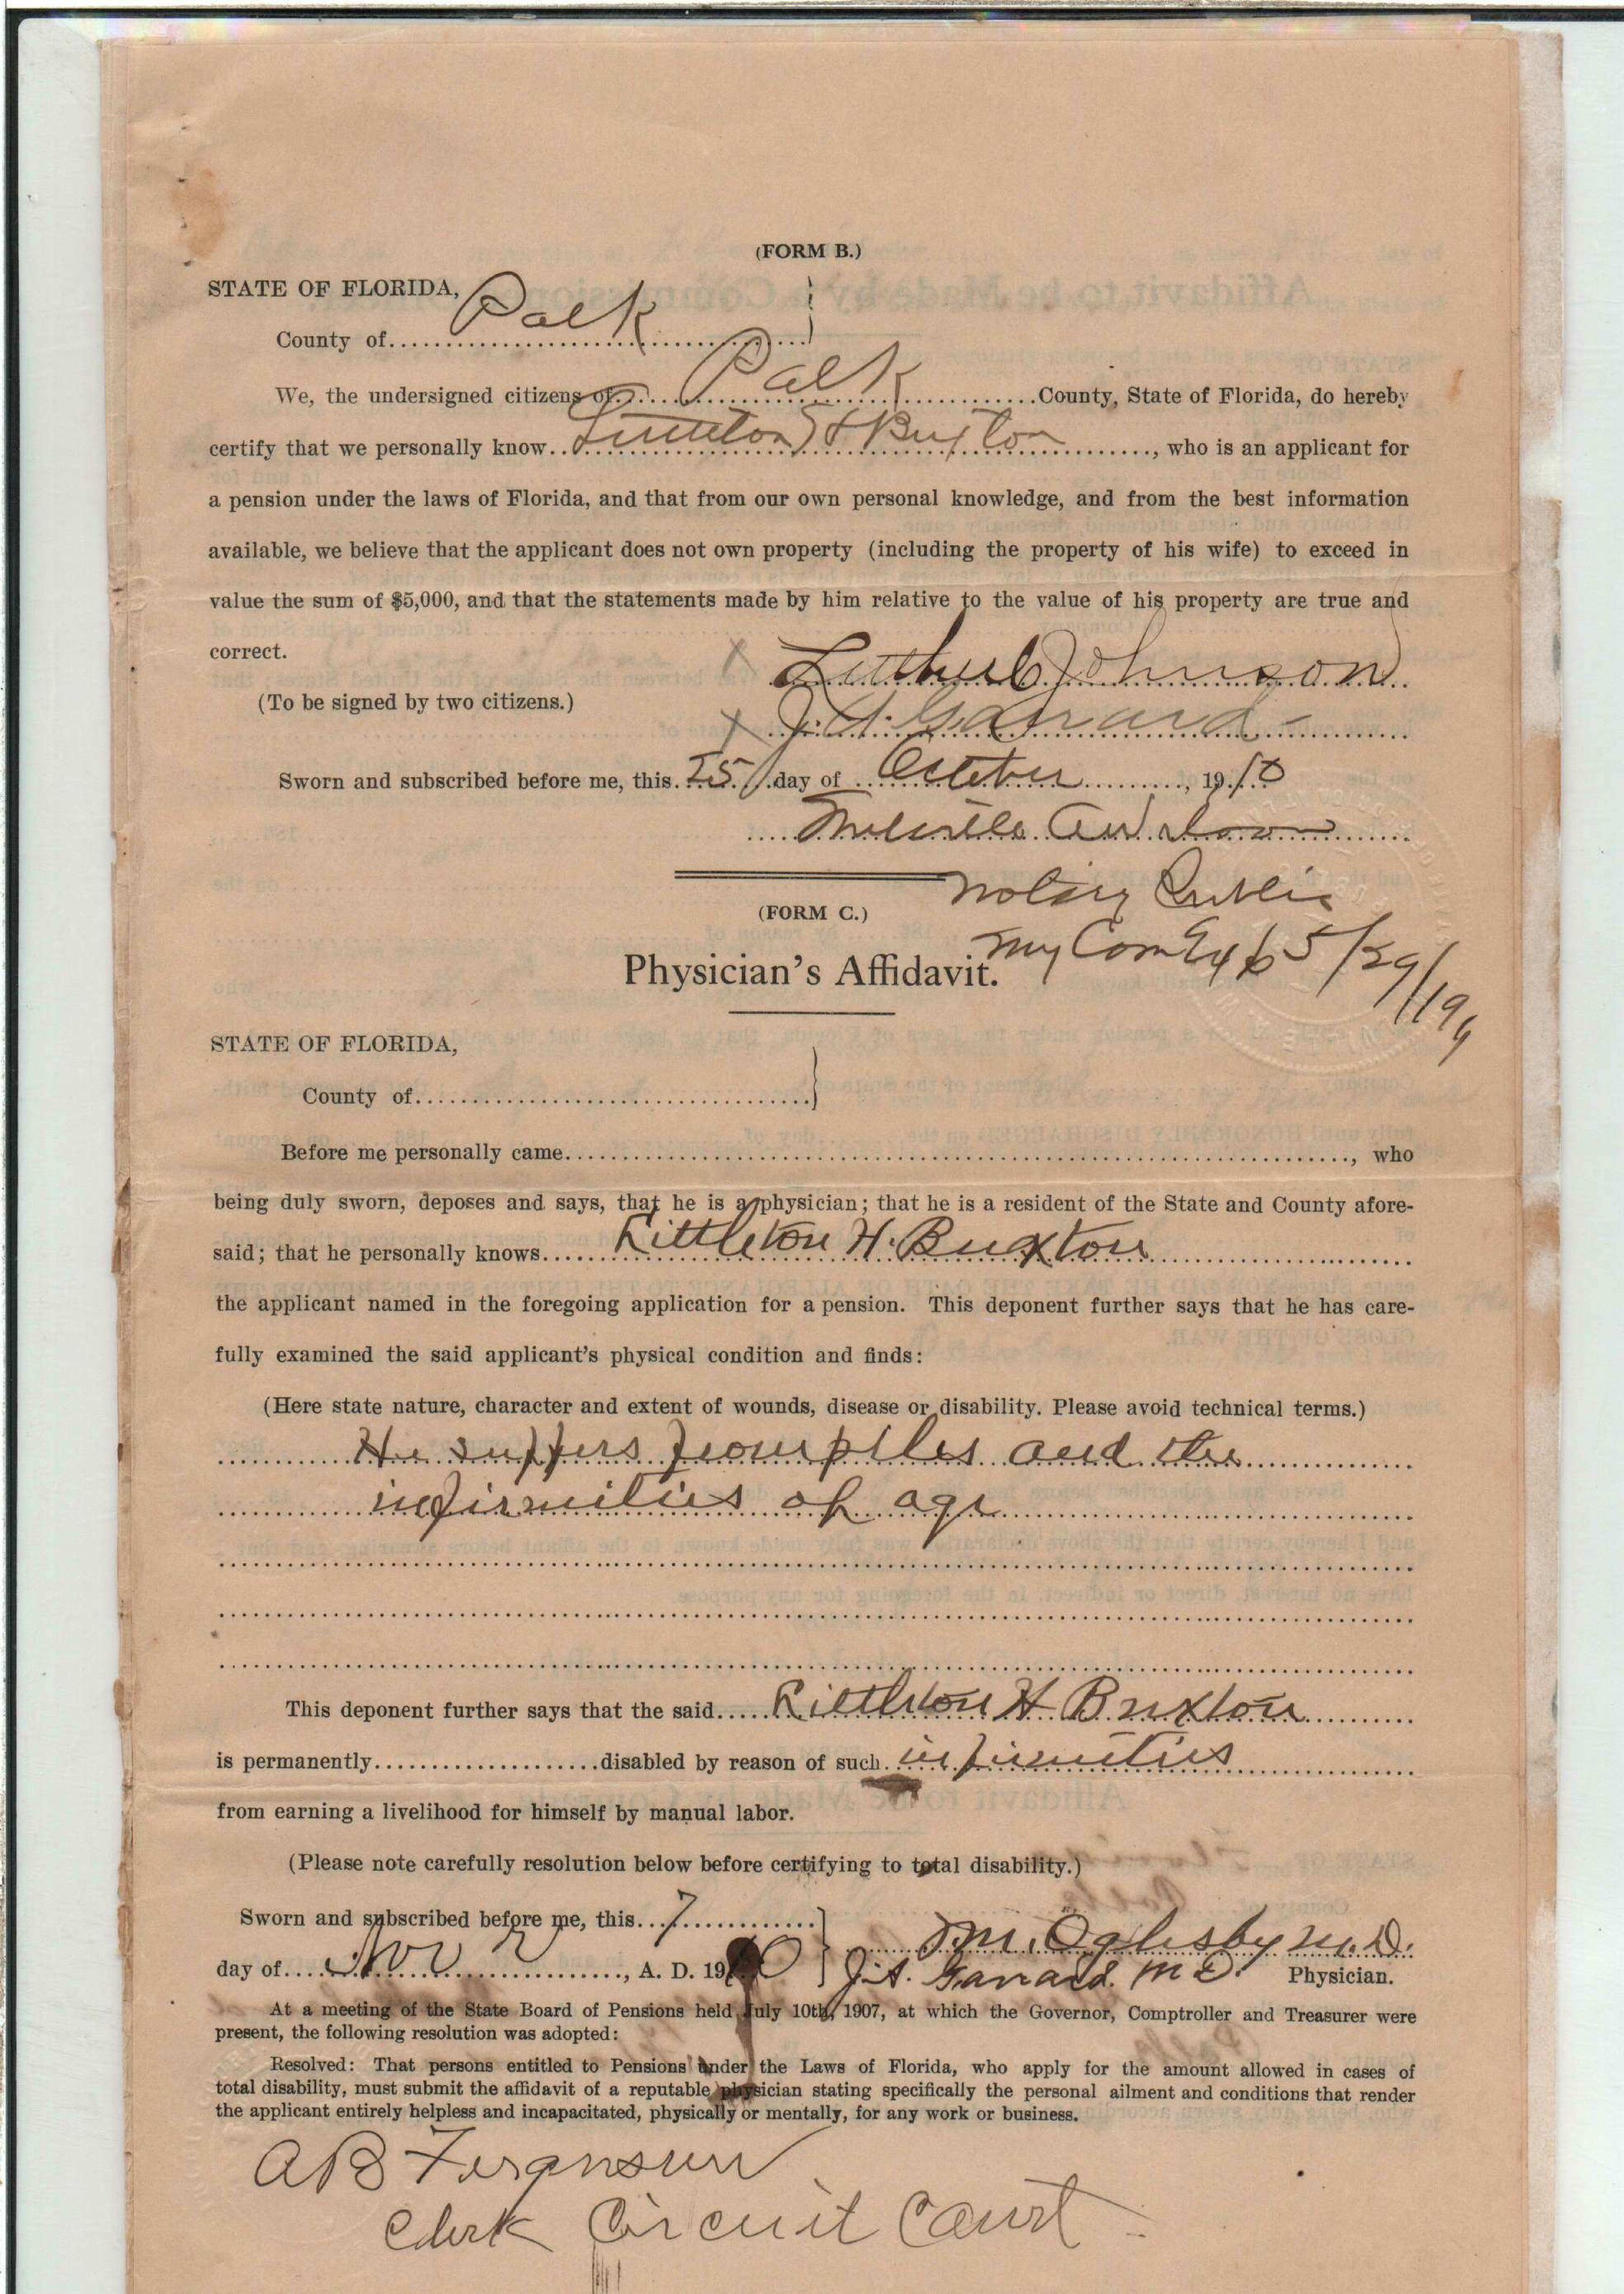 (FORM B.)
STATE OF FLORIDA,
County of Polk
We, the undersigned citizens of Polk County, State of Florida, do hereby
certify that we personally know Littleton H Buxton, who is an applicant for
a pension under the laws of Florida, and that from our own personal knowledge, and from the best information
available, we believe that the applicant does not own property (including the property of his wife) to exceed in
value the sum of $5,000, and that the statements made by him relative to the value of his property are true and
correct.
x Luther C Johnson
(To be signed by two citizens.)
x J. A. Garrard
Sworn and subscribed before me, this 25 day of October, 1910
Notary Public
(FORM C.)
My Com Exp 5/29/19
Physician's Affidavit.
STATE OF FLORIDA,
County of
Before me personally came, who
being duly sworn, deposes and says, that he is a physician; that he is a resident of the State and County afore-
said; that he personally knows Littleton H. Buxton
the applicant named in the foregoing application for a pension. This deponent further says that he has care-
fully examined the said applicant's physical condition and finds:
(Here state nature, character and extent of wounds, disease or disability. Please avoid technical terms.)
He suffers from piles and the
infirmities of age
This deponent further says that the said Littleton H Buxton
is permanently disabled by reason of such infirmities
from earning a livelihood for himself by manual labor.
(Please note carefully resolution below before certifying to total disability.)
Sworn and subscribed before me, this 7
M. Oglesby M.D.
day of Nov, A. D. 1910
J. A. Garrard. M D. Physician.
At a meeting of the State Board of Pensions held July 10th, 1907, at which the Governor, Comptroller and Treasurer were
present, the following resolution was adopted:
Resolved: That persons entitled to Pensions under the Laws of Florida, who apply for the amount allowed in cases of
total disability, must submit the affidavit of a reputable physician stating specifically the personal ailment and conditions that render
the applicant entirely helpless and incapacitated, physically or mentally, for any work or business.
A B Ferguson
Clerk Circuit Court